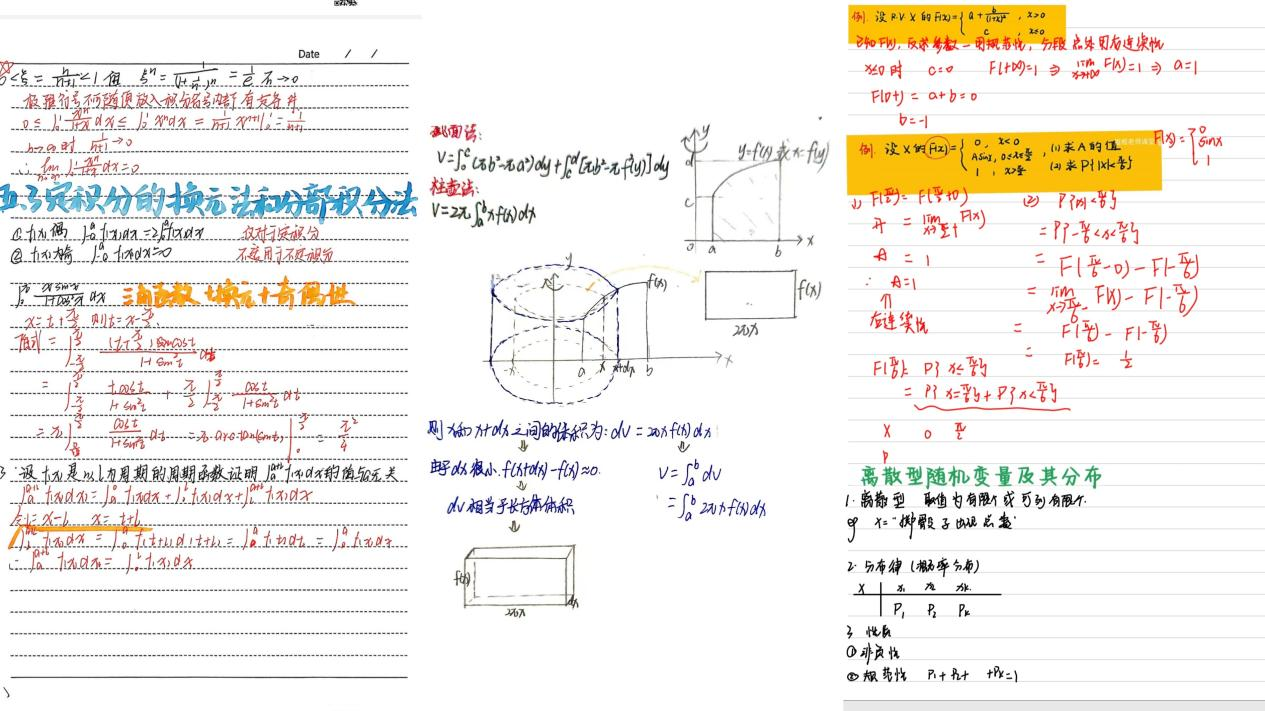 Date / /
0<ξ = n/(n+1) <1 但 ξⁿ = 1/(1+1/n)ⁿ = 1/e 不→0
极限符号不可随便放入积分符号内 有大条件
0 ≤ ∫₀¹ xⁿ/(1+x) dx ≤ ∫₀¹ xⁿ dx = 1/(n+1) xⁿ⁺¹|₀¹ = 1/(n+1)
n→∞时 1/(n+1) →0
∴ lim n→∞ ∫₀¹ xⁿ/(1+x) dx = 0
五.3定积分的换元法和分部积分法
① f(x)偶 ∫₋ₐᵃ f(x)dx = 2∫₀ᵃ f(x)dx 仅对于定积分
② f(x)奇 ∫₋ₐᵃ f(x)dx = 0 不适用于不定积分
∫₀^π x sinx/(1+cos²x) dx 三角函数+换元+奇偶性
x = t + π/2 则 t = x - π/2
原式 = ∫_{-π/2}^{π/2} (t+π/2)cost/(1+sin²t) dt
= ∫_{-π/2}^{π/2} tcost/(1+sin²t) + π/2 ∫_{-π/2}^{π/2} cost/(1+sin²t) dt
= π ∫₀^{π/2} cost/(1+sin²t) dt = π arctan(sint) |₀^{π/2} = π²/4
设f(x)是以l为周期的周期函数证明 ∫ₐ^{a+l} f(x)dx的值与a无关
∫ₐ^{a+l} f(x)dx = ∫ₐ⁰ f(x)dx + ∫₀ˡ f(x)dx + ∫ₗ^{a+l} f(x)dx
令t = x-l x = t+l
∫ₗ^{a+l} f(x)dx = ∫₀ᵃ f(t+l)d(t+l) = ∫₀ᵃ f(t)dt = ∫₀ᵃ f(x)dx
∴ ∫ₐ^{a+l} f(x)dx = ∫₀ˡ f(x)dx
截面法:
V=∫₀ᶜ(πb²-πa²)dy+∫꜀ᵈ[πb²-πf²(y)]dy
柱壳法:
V=2π∫ₐᵇxf(x)dx
y
y=f(x) 或 x=f(y)
d
c
0 a b x
y
f(x)
-x a x x+dx b x
f(x)
2πx
则x和x+dx之间的体积为: dV = 2πx f(x) dx
由于dx很小. f(x+dx)-f(x)≈0.
V=∫ₐᵇ dV
dV相当于长方体体积
=∫ₐᵇ 2πx f(x)dx
f(x)
2πx
dx
例. 设 R.V. X 的 F(x)= { a + b/(1+x)², x>0
c , x≤0
已知F(x), 反求参数—用规范性, 分段点处用右连续性
x≤0时 c=0 F(+∞)=1 ⇒ lim x→+∞ F(x)=1 ⇒ a=1
F(0+) = a+b=0
b=-1
例. 设X的F(x)= { 0, x<0
Asinx, 0≤x≤π/2 , (1) 求A的值
1 , x>π/2 (2) 求P{|x|<π/6}
F(x)= { 0
sinx
1
1) F(π/2) = F(π/2+0)
A = lim x→π/2+ F(x)
A = 1
∴ A=1
右连续性
(2) P{|x|<π/6}
= P{-π/6<x<π/6}
= F(π/6-0) - F(-π/6)
= lim x→π/6- F(x) - F(-π/6)
= F(π/6) - F(-π/6)
= F(π/6) = 1/2
F(π/6) = P{x≤π/6}
= P{x=π/6} + P{x<π/6}
X 0 π/2
P
离散型随机变量及其分布
1. 离散型 取值为有限个或可列有限个.
eg X="掷骰子出现点数"
2. 分布律 (概率分布)
X x₁ x₂ xₖ
P₁ P₂ Pₖ
3. 性质
① 非负性
② 规范性 P₁+P₂+ +Pₖ=1